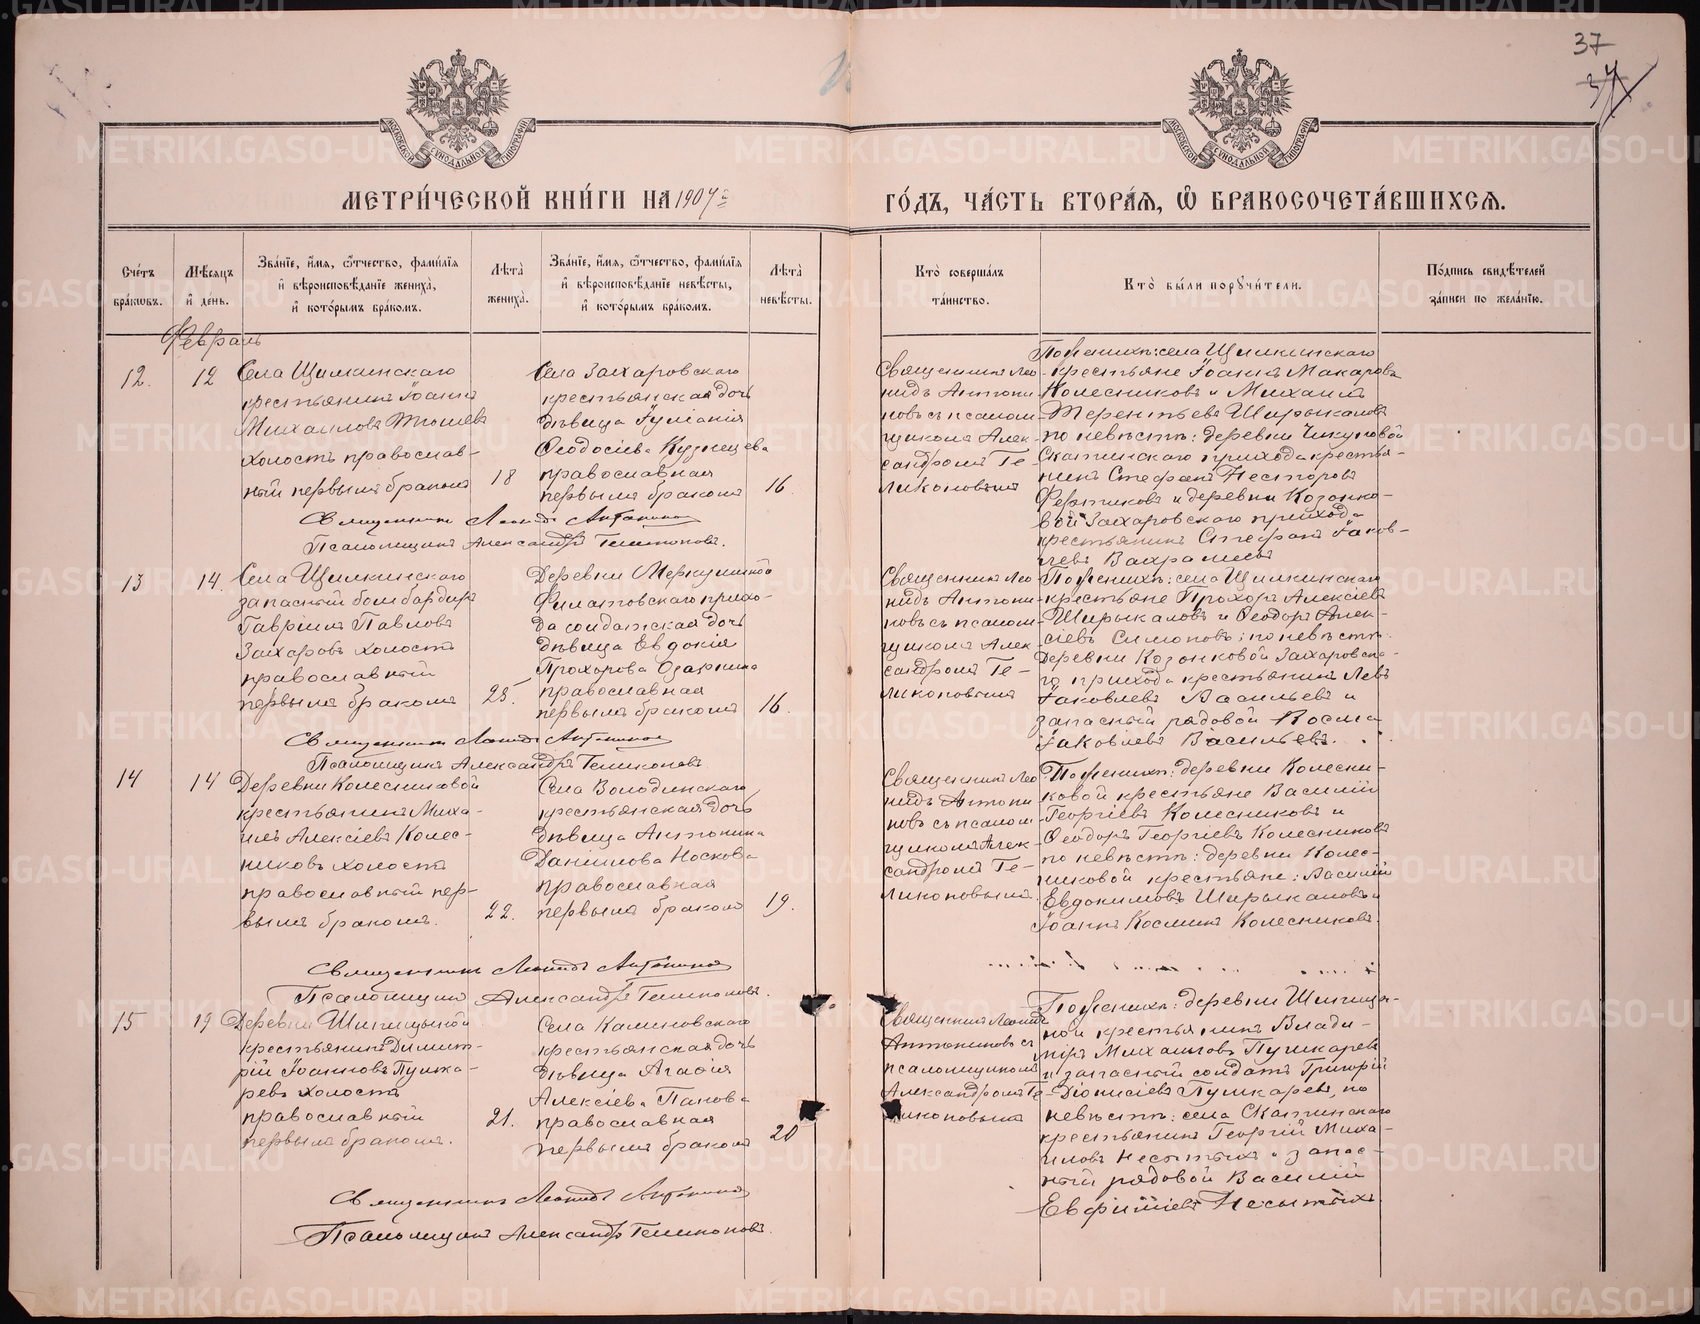 37
МЕТРИ́ЧЕСКОЙ КНИ́ГИ НА 1907 й
ГО́ДЪ, ЧА́СТЬ ВТОРА́Ѧ, Ѽ БРАКОСОЧЕТА́ВШИХСѦ.
Сче́тъ бра́ковъ.
Мѣ́сяцъ и́ де́нь.
Зва́нїе, и́мя, ѻ́тчество, фами́лїя и́ вѣроисповѣ́данїе жениха̀, и́ кото́рымъ бра́комъ.
Лѣ́та̀ жениха̀.
Зва́нїе, и́мя, ѻ́тчество, фами́лїя и́ вѣроисповѣ́данїе невѣ́сты, и́ кото́рымъ бра́комъ.
Лѣ́та̀ невѣ́сты.
Кто̀ соверша́лъ та́инство.
Кто̀ бы́ли порꙋчи́тели.
По́дпись свидѣ́телей за́писи по жела́нїю.
Февраль
12.
12
Села Щилкинскаго
крестьянинъ Іоаннъ
Михаиловъ
холостъ православ-
ный первымъ бракомъ
18
Села Захаровскаго
крестьянская дочь
дѣвица Іуліанія
Ѳеодосіева Кузнецова
православная
первымъ бракомъ
16.
Священникъ Лео-
нидъ Антони-
новъ съ псалом-
щикомъ Алек-
сандромъ Те-
лихоновымъ
По женихѣ: села Щилкинскаго
крестьяне Іоаннъ Макаровъ
Колесниковъ и Михаилъ
Терентьевъ Ширыкаловъ
по невѣстѣ: деревни
Скатинскаго прихода крестья-
нинъ Стефанъ Несторовъ
и деревни Казанко-
вой Захаровскаго прихода
крестьянинъ Стефанъ Іаков-
левъ
Священникъ Леонидъ Антонинов
Псаломщикъ Александръ Телихоновъ.
13
14.
Села Щилкинскаго
запасный бомбардиръ
Гавріилъ Павловъ
Захаровъ холостъ
православный
первымъ бракомъ
25.
Деревни Меркушиной
Филатовскаго прихо-
да солдатская дочь
дѣвица Евдокія
Прохорова
православная
первымъ бракомъ
16.
Священникъ Лео-
нидъ Антони-
новъ съ псалом-
щикомъ Алек-
сандромъ Те-
лихоновымъ
По женихѣ: села Щилкинскаго
крестьяне Прохоръ Алексіевъ
Ширыкаловъ и Ѳеодоръ Алек-
сіевъ Симоновъ; по невѣстѣ:
Деревни Казонковой Захаровска-
го прихода крестьянинъ Левъ
Іаковлевъ Васильевъ и
запасный рядовой Косма
Іаковлевъ Васильевъ.
Священникъ Леонидъ Антонинов
Псаломщикъ Александръ Телихоновъ
14
14
Деревни Колесниковой
крестьянинъ Миха-
илъ Алексіевъ Колес-
никовъ холостъ
православный пер-
вымъ бракомъ.
22.
Села Володинскаго
крестьянская дочь
дѣвица Антонина
Даніилова Носкова
православная
первымъ бракомъ
19.
Священникъ Лео-
нидъ Антони-
новъ съ псалом-
щикомъ Алек-
сандромъ Те-
лихоновымъ.
По женихѣ: деревни Колесни-
ковой крестьяне Василій
Георгіевъ Колесниковъ и
Ѳеодоръ Георгіевъ Колесниковъ
по невѣстѣ: деревни Колес-
никовой крестьяне: Василій
Евдокимовъ Ширыкаловъ и
Іоаннъ Косминъ Колесниковъ.
Священникъ Леонидъ Антонинов
Псаломщикъ Александръ Телихоновъ.
15
19
Деревни Шипицыной
крестьянинъ Димит-
рій Іоанновъ Пушка-
ревъ холостъ
православный
первымъ бракомъ.
21.
Села Калиновскаго
крестьянская дочь
дѣвица Агаѳія
Алексіева Панова
православная
первымъ бракомъ
20
Священникъ Леонидъ
Антониновъ съ
псаломщикомъ
Александромъ Те-
лихоновымъ
По женихѣ: деревни Шипицы-
ной крестьянинъ Влади-
міръ Михаиловъ Пушкаревъ
и запасный солдатъ Григорій
Діонисіевъ Пушкаревъ, по
невѣстѣ: села Скатинскаго
крестьянинъ Георгій Миха-
иловъ Несытыхъ и запас-
ный рядовой Василій
Евфиміевъ Несытыхъ.
Священникъ Леонидъ Антонинов
Псаломщикъ Александръ Телихоновъ.
METRIKI.GASO-URAL.RU